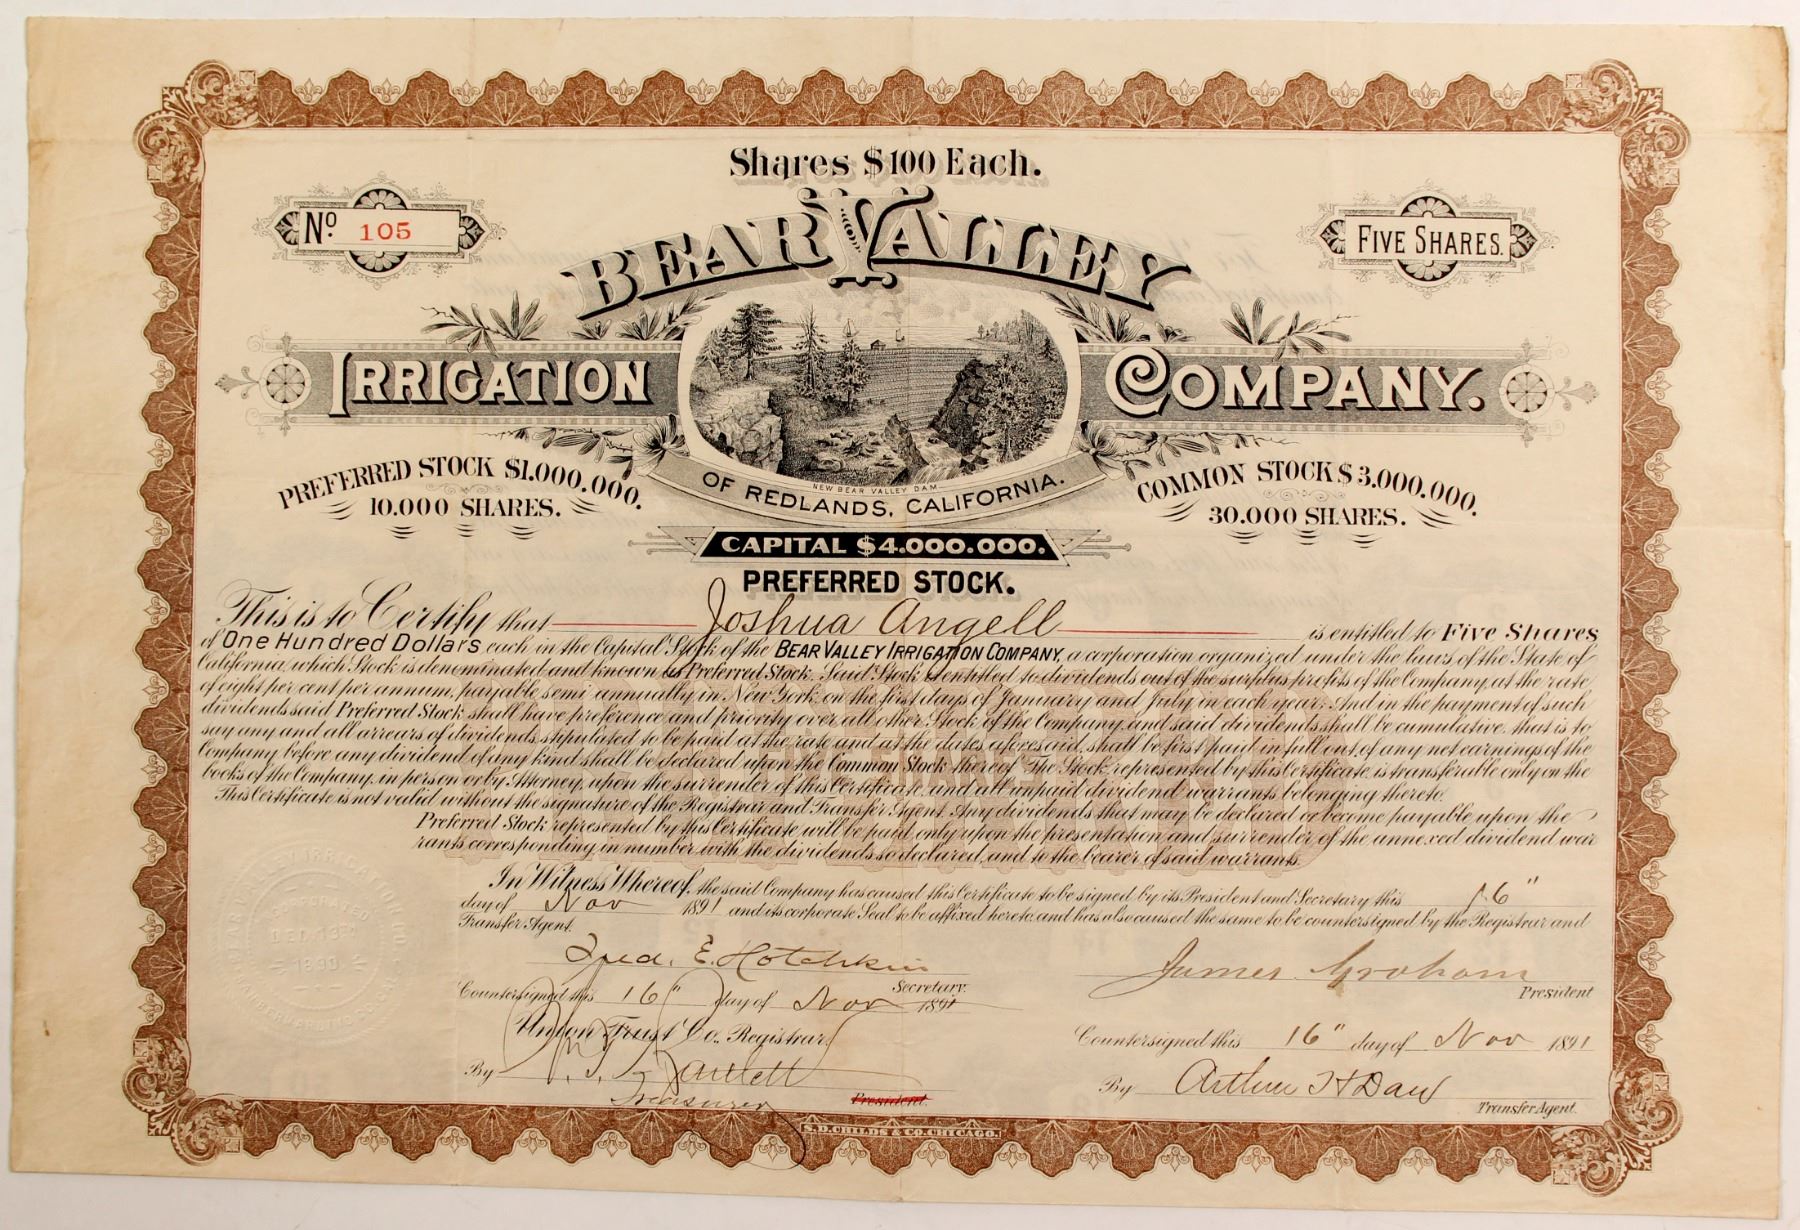 Shares $100 Each.
No. 105
FIVE SHARES.
BEAR VALLEY
IRRIGATION COMPANY.
NEW BEAR VALLEY DAM
OF REDLANDS, CALIFORNIA.
PREFERRED STOCK $1.000.000.
10.000 SHARES.
COMMON STOCK $3.000.000.
30.000 SHARES.
CAPITAL $4.000.000.
PREFERRED STOCK.
This is to Certify that Joshua Angell is entitled to Five Shares
of One Hundred Dollars each in the Capital Stock of the BEAR VALLEY IRRIGATION COMPANY, a corporation organized under the laws of the State of
California, which Stock is denominated and known as Preferred Stock. Said Stock is entitled to dividends out of the surplus profits of the Company, at the rate
of eight per cent per annum, payable semi annually in New York on the first days of January and July in each year. And in the payment of such
dividends said Preferred Stock shall have preference and priority over all other Stock of the Company, and said dividends shall be cumulative, that is to
say any and all arrears of dividends stipulated to be paid at the rate and at the dates aforesaid, shall be first paid in full out of any net earnings of the
Company before any dividend of any kind shall be declared upon the Common Stock thereof. The Stock represented by this Certificate is transferable only on the
books of the Company, in person or by Attorney, upon the surrender of this Certificate, and all unpaid dividend warrants belonging thereto.
This Certificate is not valid without the signature of the Registrar and Transfer Agent. Any dividends that may be declared or become payable upon the
Preferred Stock represented by this Certificate will be paid only upon the presentation and surrender of the annexed dividend war
rants corresponding in number with the dividends so declared, and to the bearer of said warrants.
In Witness Whereof, the said Company has caused this Certificate to be signed by its President and Secretary this 16"
day of Nov 1891 and its corporate Seal to be affixed hereto, and has also caused the same to be countersigned by the Registrar and
Transfer Agent.
Fred. E. Hotchkin
Secretary.
James Graham
President
Countersigned this 16" day of Nov 1891
Union Trust Co., Registrar
By
Treasurer
President.
Countersigned this 16" day of Nov 1891
By Arthur H Daw
Transfer Agent.
BEAR VALLEY IRRIGATION CO.
INCORPORATED
DEC.
1890
SAN BERNARDINO CO.
S.D. CHILDS & CO. CHICAGO.